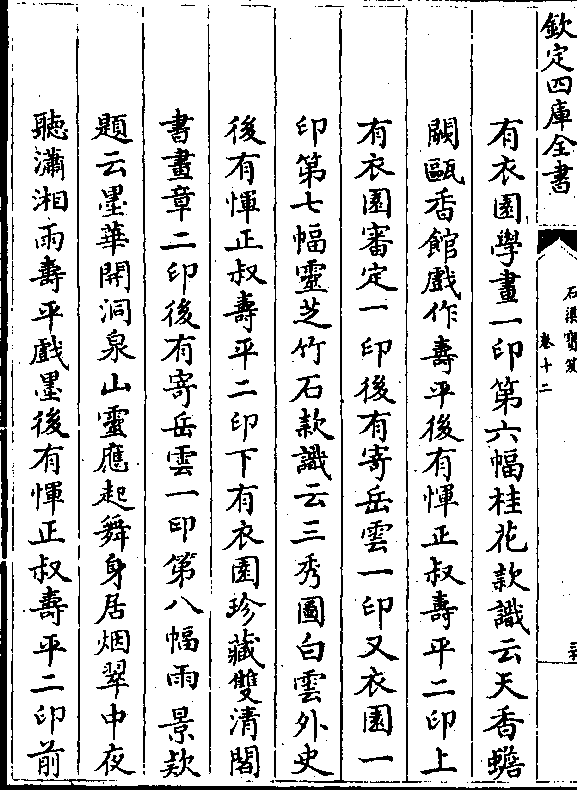 欽定四庫全書
石渠寶笈
卷十二
有衣園學畫一印第六幅桂花款識云天香蟾
闕甌香館戲作壽平後有惲正叔壽平二印上
有衣園審定一印後有寄岳雲一印又衣園一
印第七幅靈芝竹石款識云三秀圖白雲外史
後有惲正叔壽平二印下有衣園珍藏雙清閣
書畫章二印後有寄岳雲一印第八幅雨景款
題云墨華開洞泉山靈應起舞身居烟翠中夜
聽瀟湘雨壽平戲墨後有惲正叔壽平二印前